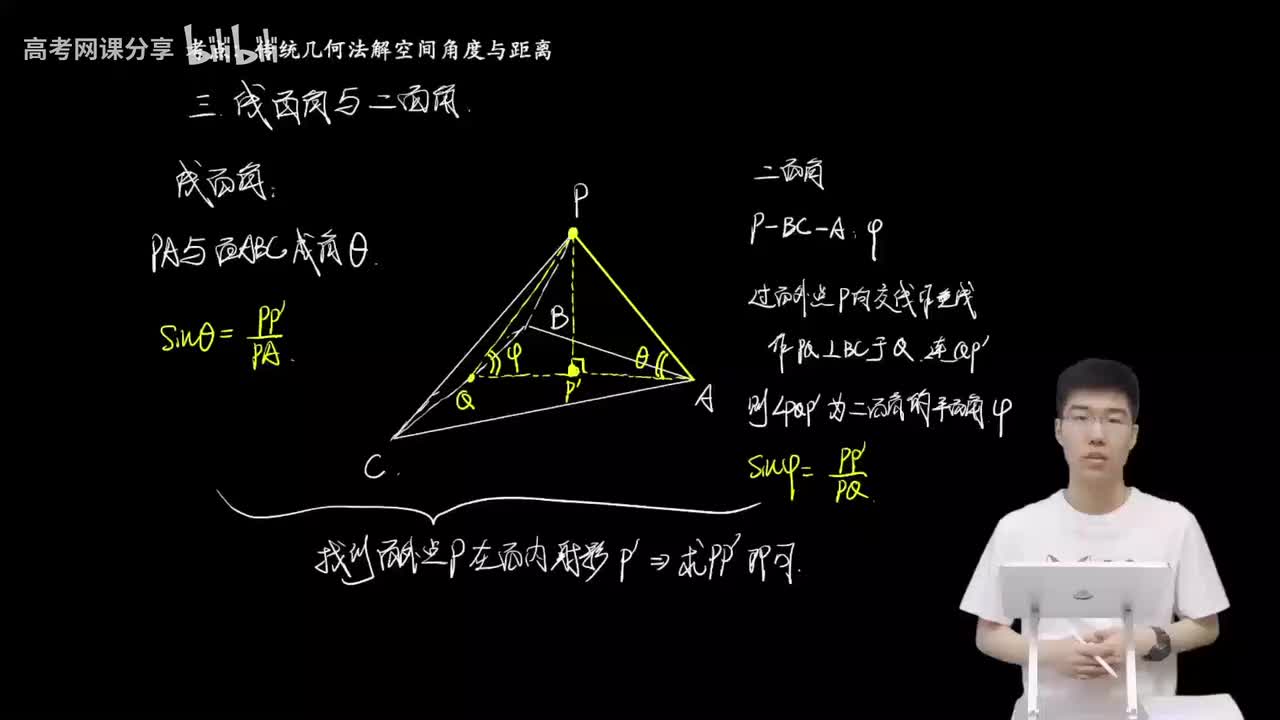 高考网课分享
bilibili
传统几何法解空间角度与距离
三.线面角与二面角.
线面角:
PA与面ABC成角θ.
sinθ=PP'/PA.
P
B
φ
θ
Q
P'
A
C.
二面角
P-BC-A:φ
过面外点P向交线作垂线
作PQ⊥BC于Q.连QP'
则∠PQP'为二面角的平面角φ
sinφ=PP'/PQ.
找到面外点P在面内射影P'⇒求PP'即可.